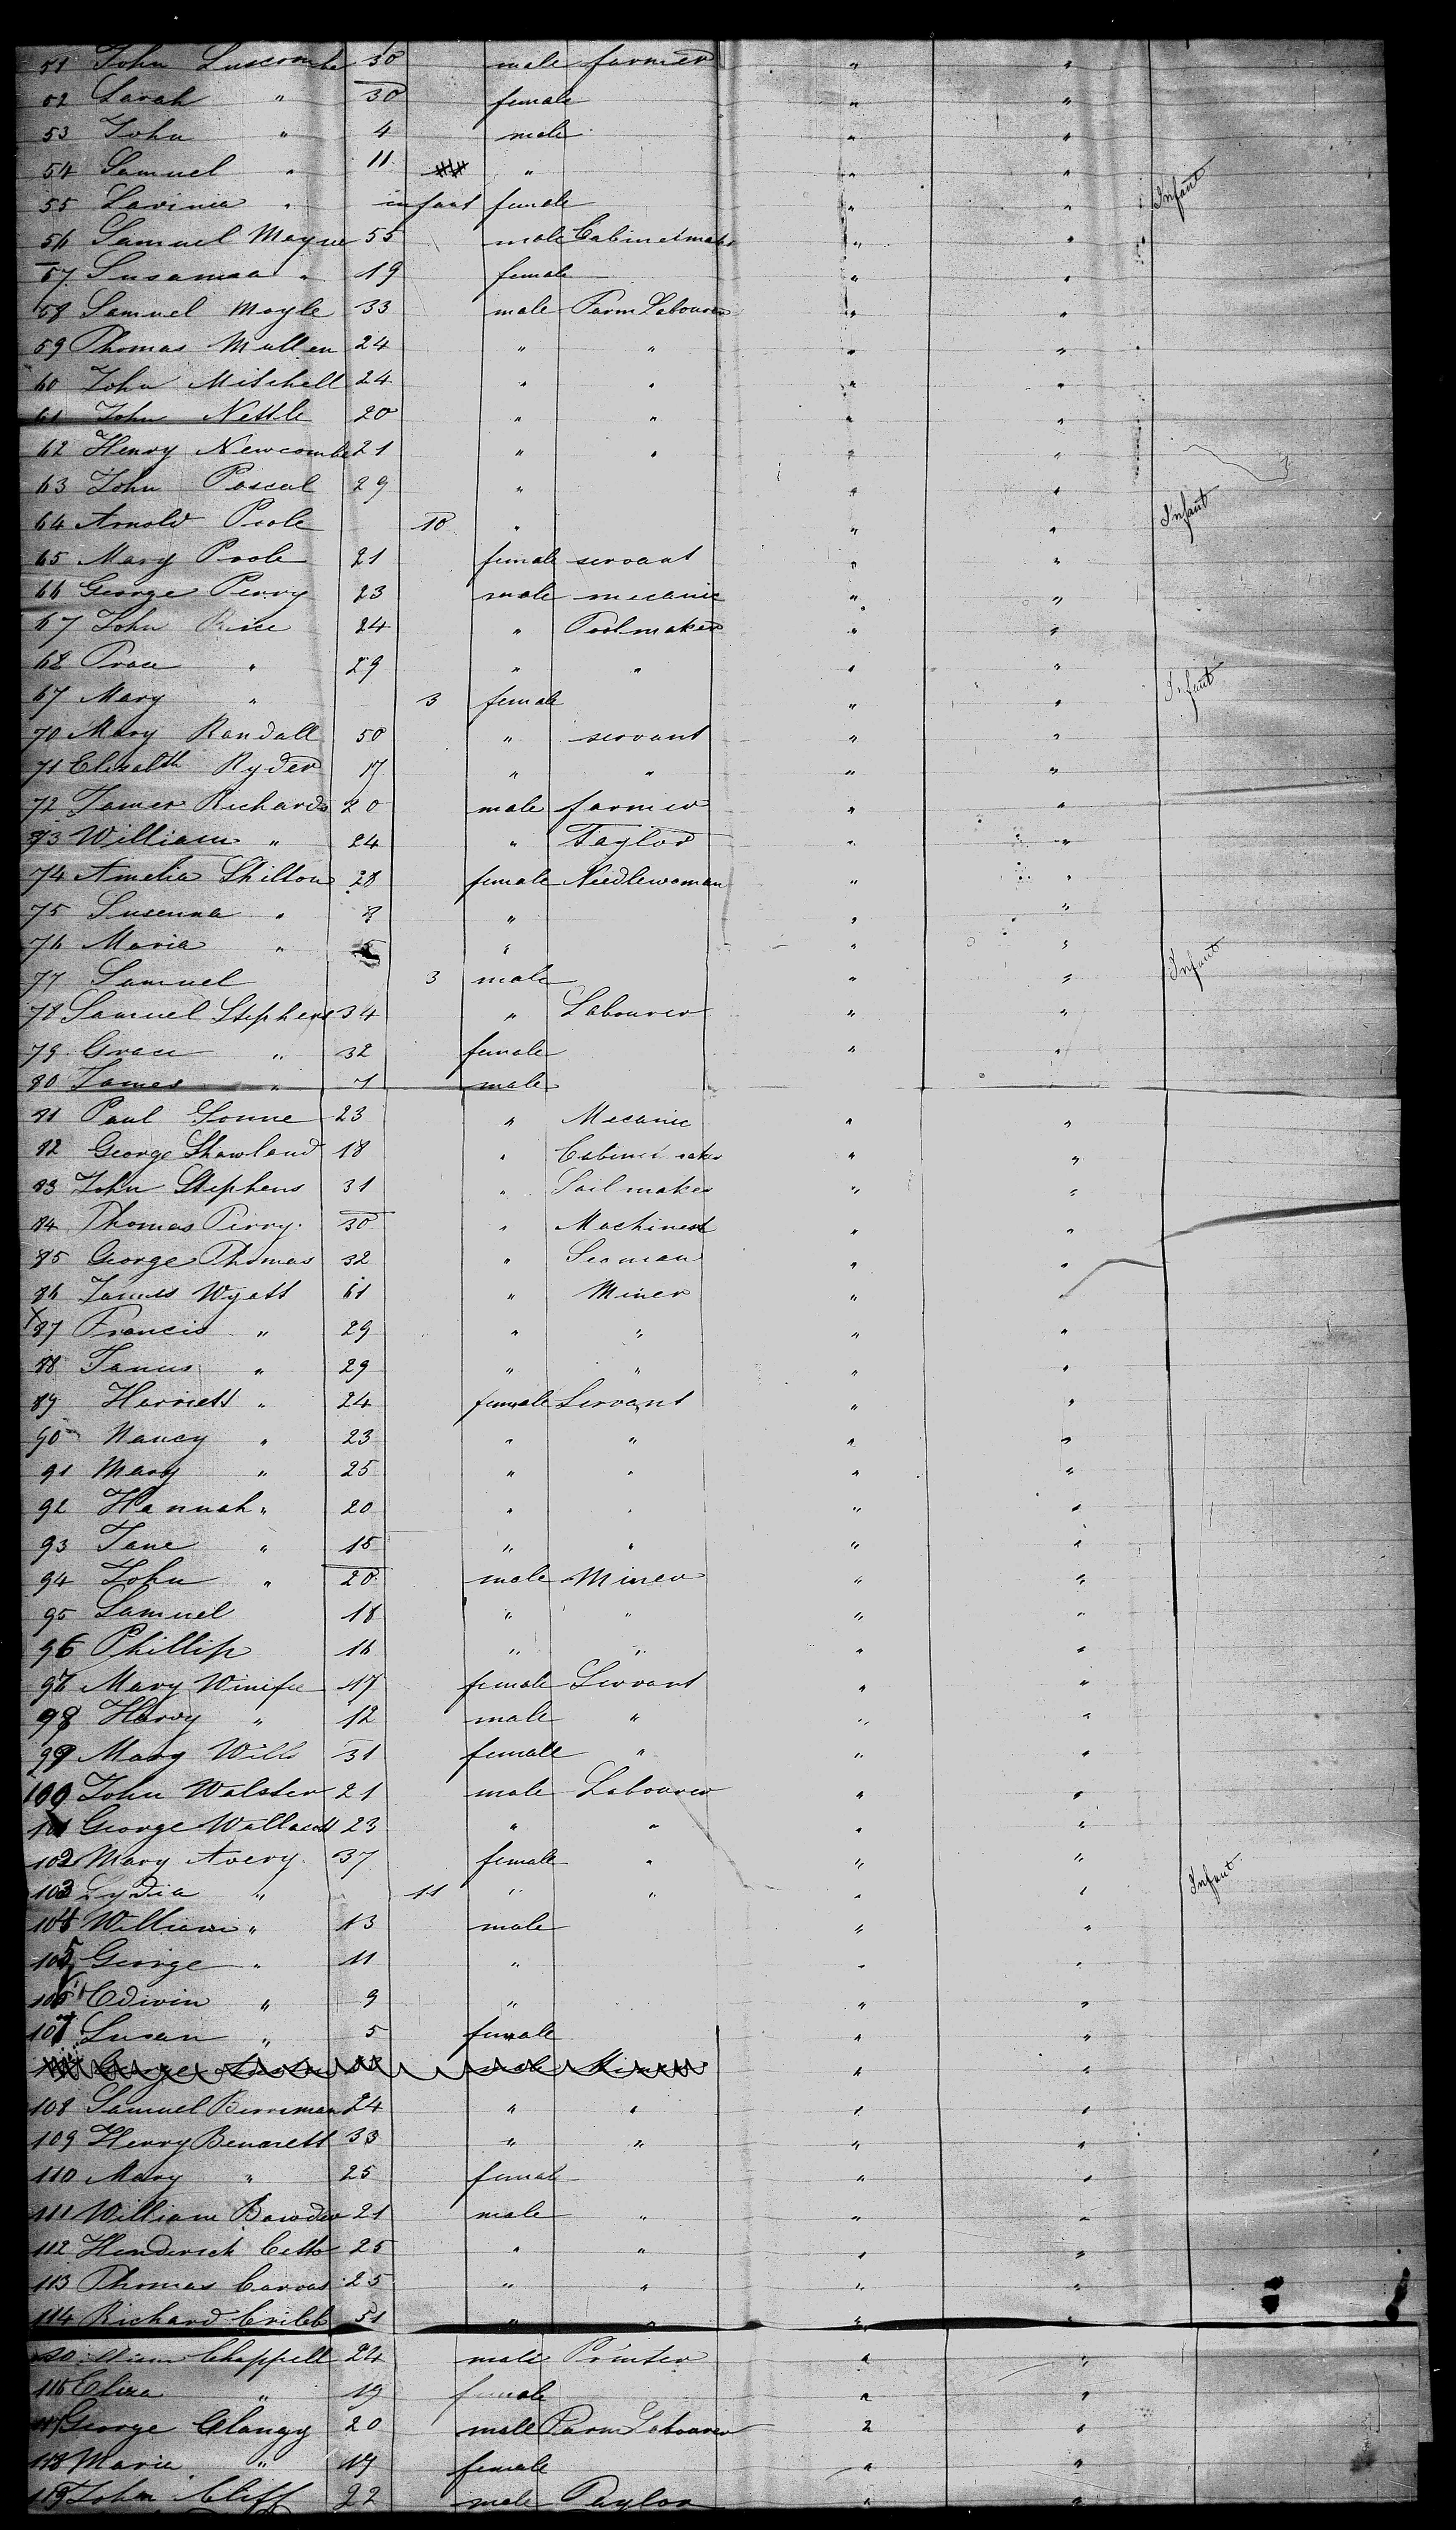 51 John Luscombe 30 male farmer " "
52 Sarah " 30 female " "
53 John " 4 male " "
54 Samuel " 11 " " "
55 Lavinia " infant female " " Infant
56 Samuel Mayne 55 male Cabinetmaker " "
57 Susanna " 19 female " "
58 Samuel Moyle 33 male Farm Labourer " "
59 Thomas Mullen 24 " " " "
60 John Mitchell 24 " " " "
61 John Nettle 20 " " " "
62 Henry Newcombe 21 " " " "
63 John Pascal 29 " " "
64 Arnold Poole 10 " " " Infant
65 Mary Poole 21 female servant " "
66 George Perry 23 male mecanic " "
67 John Rice 24 " Toolmaker " "
68 Grace " 29 " " " "
67 Mary " 3 female " " Infant
70 Mary Randall 50 " servant " "
71 Elizabth Ryder 17 " " " "
72 James Richards 20 male farmer " "
73 William " 24 " Taylor " "
74 Amelia Shilton 28 female Needlewoman " "
75 Susenna " 8 " " "
76 Maria " " " "
77 Samuel 3 male " " Infant
78 Samuel Stephens 34 " Labourer " "
79 Grace " 32 female " "
80 James " 7 male
81 Paul Gonne 23 " Mecanic " "
82 George Showland 18 " Cabinet maker " "
83 John Stephens 31 " Sailmaker " "
84 Thomas Perry 30 " Machinest " "
85 George Thomas 32 " Seaman " "
86 James Wyatt 61 " Miner "
87 Francis " 29 " " " "
88 James " 29 " " " "
89 Harriett " 24 female Servant " "
90 Nancy " 23 " " " "
91 Mary " 25 " " " "
92 Hannah " 20 " " " "
93 Jane " 15 " " " "
94 John " 20 male Miner " "
95 Samuel 18 " " " "
96 Phillip 16 " " " "
97 Mary Winifee 17 female Servant " "
98 Harvy " 12 male " " "
99 Mary Wills 31 female " " "
100 John Walster 21 male Labourer " "
101 George Wallacott 23 " " " "
102 Mary Avery 37 female " " "
103 Lydia " 11 " " " " Infant
104 William " 13 male " "
105 George " 11 " " "
106 Edwin " 9 " " "
107 Susan " 5 female " "
108 Samuel Berriman 24 " " " "
109 Henry Bennett 33 " " " "
110 Mary " 25 female " "
111 William Bowden 21 male " " "
112 Henderick Cetto 25 " " " "
113 Thomas Carvas 25 " " " "
114 Richard Cribb 51 " " " "
William Chappell 24 male Printer " "
116 Eliza " 19 female " "
117 George Clangy 20 male Farm Labourer " "
118 Maria " 19 female " "
119 John Cliff 22 male Taylor " "